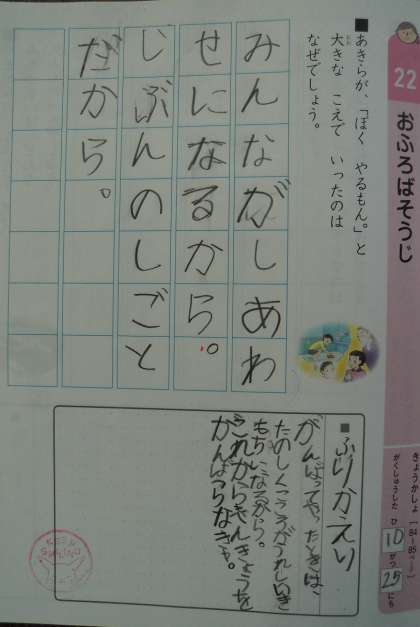 22
おふろばそうじ
きょうかしょ【84〜85ページ】
がくしゅうした ひ 10 がつ 25 にち
■あきらが、「ぼく やるもん。」と
大きな こえで いったのは
なぜでしょう。
みんながしあわ
せになるから。
じぶんのしごと
だから。
■ふりかえり
がんばってやったときは、
たのしくて
もちになるから。
これから
がんばらなきゃ。
KEEP
SMILING